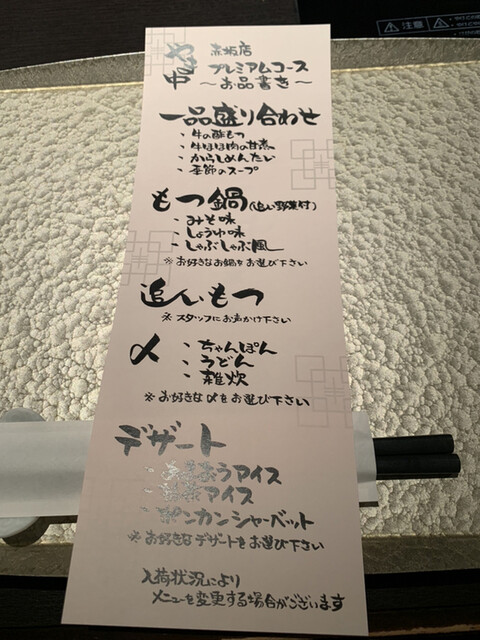 注意
やま中
赤坂店
プレミアムコース
～お品書き～
一品盛り合わせ
・牛の酢もつ
・牛ほほ肉の甘煮
・からしめんたい
・季節のスープ
もつ鍋(追い野菜付)
・みそ味
・しょうゆ味
・しゃぶしゃぶ風
※お好きなお鍋をお選び下さい
追いもつ
※スタッフにお声かけ下さい
〆
・ちゃんぽん
・うどん
・雑炊
※お好きな〆をお選び下さい
デザート
アイス
・抹茶アイス
・ポンカンシャーベット
※お好きなデザートをお選び下さい
入荷状況により
メニューを変更する場合がございます